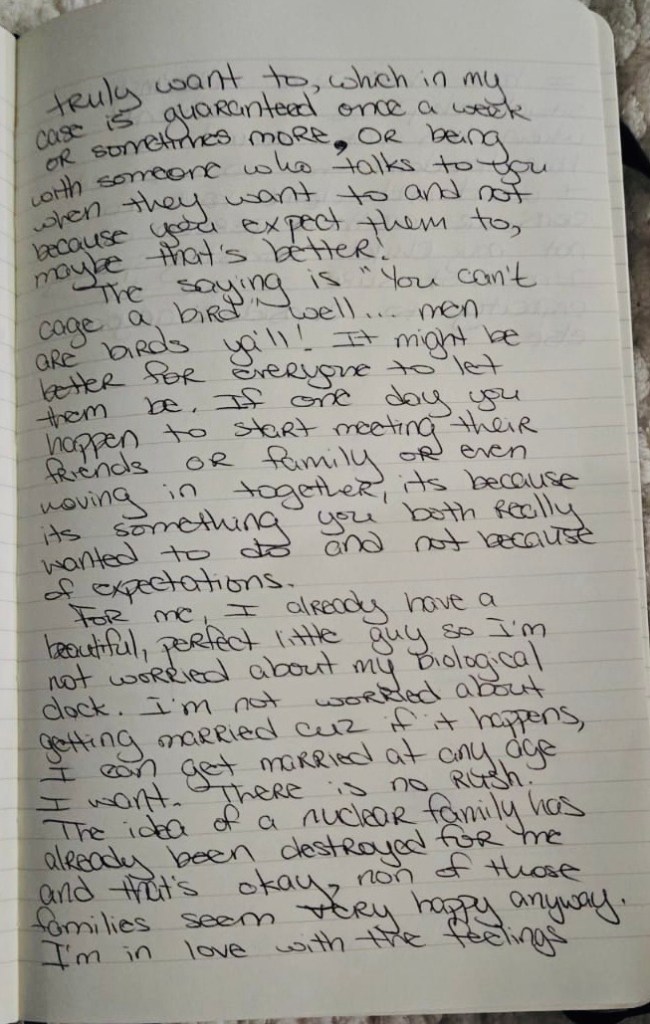 truly want to, which in my
case is guaranteed once a week
or sometimes more, or being
with someone who talks to you
when they want to and not
because you expect them to,
maybe that's better!
The saying is "You can't
cage a bird" well... men
are birds ya'll! It might be
better for everyone to let
them be. If one day you
happen to start meeting their
friends or family or even
moving in together, its because
its something you both really
wanted to do and not because
of expectations.
For me, I already have a
beautiful, perfect little guy so I'm
not worried about my biological
clock. I'm not worried about
getting married cuz if it happens,
I can get married at any age
I want. There is no rush.
The idea of a nuclear family has
already been destroyed for me
and that's okay, non of those
families seem very happy anyway.
I'm in love with the feelings